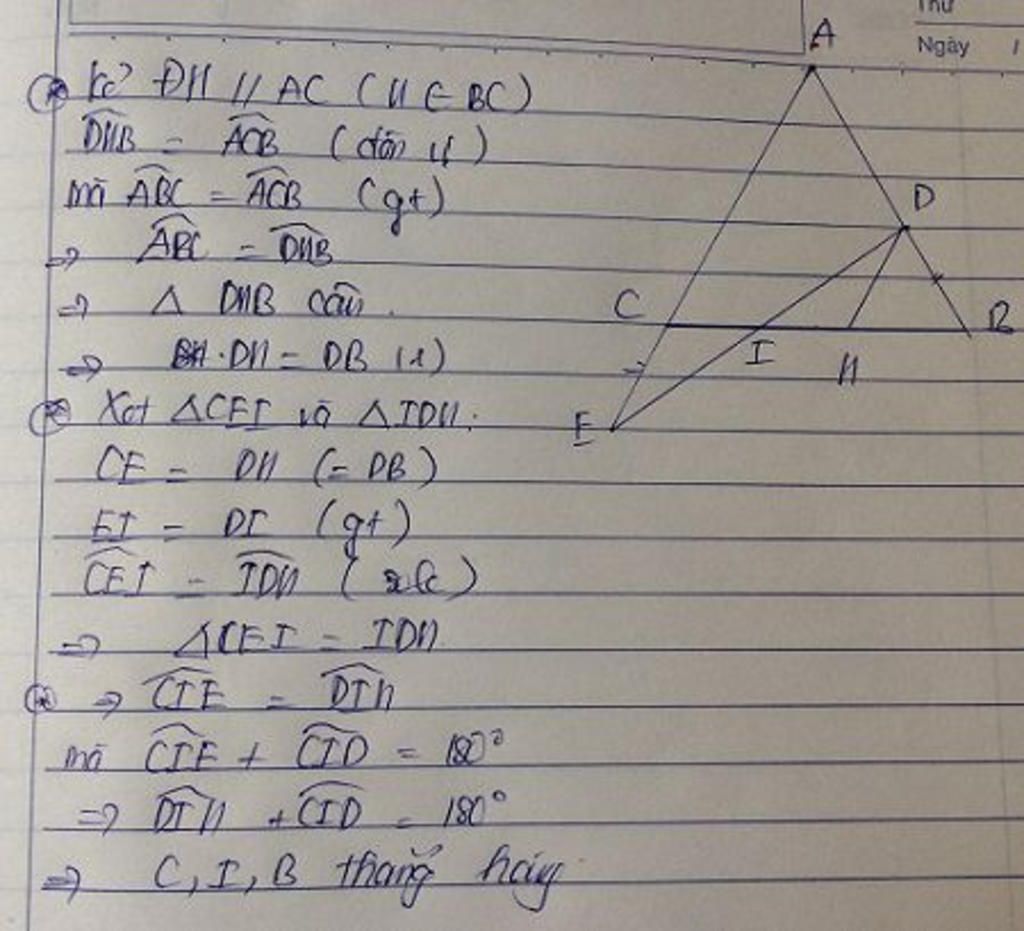 Thứ
Ngày
A
Kẻ DH // AC (H ∈ BC)
DHB = ACB (đồng vị)
mà ABC = ACB (gt)
D
=> ABC = DHB
=> Δ DHB cân.
C
B
I
H
=> DH = DB (1)
E
Xét ΔCEI và ΔIDH:
CE = DH (= DB)
EI = DI (gt)
CEI = IDH (slt)
=> ΔCEI = IDH
=> CIE = DIH
mà CIE + CID = 180°
=> DIH + CID = 180°
=> C, I, B thẳng hàng